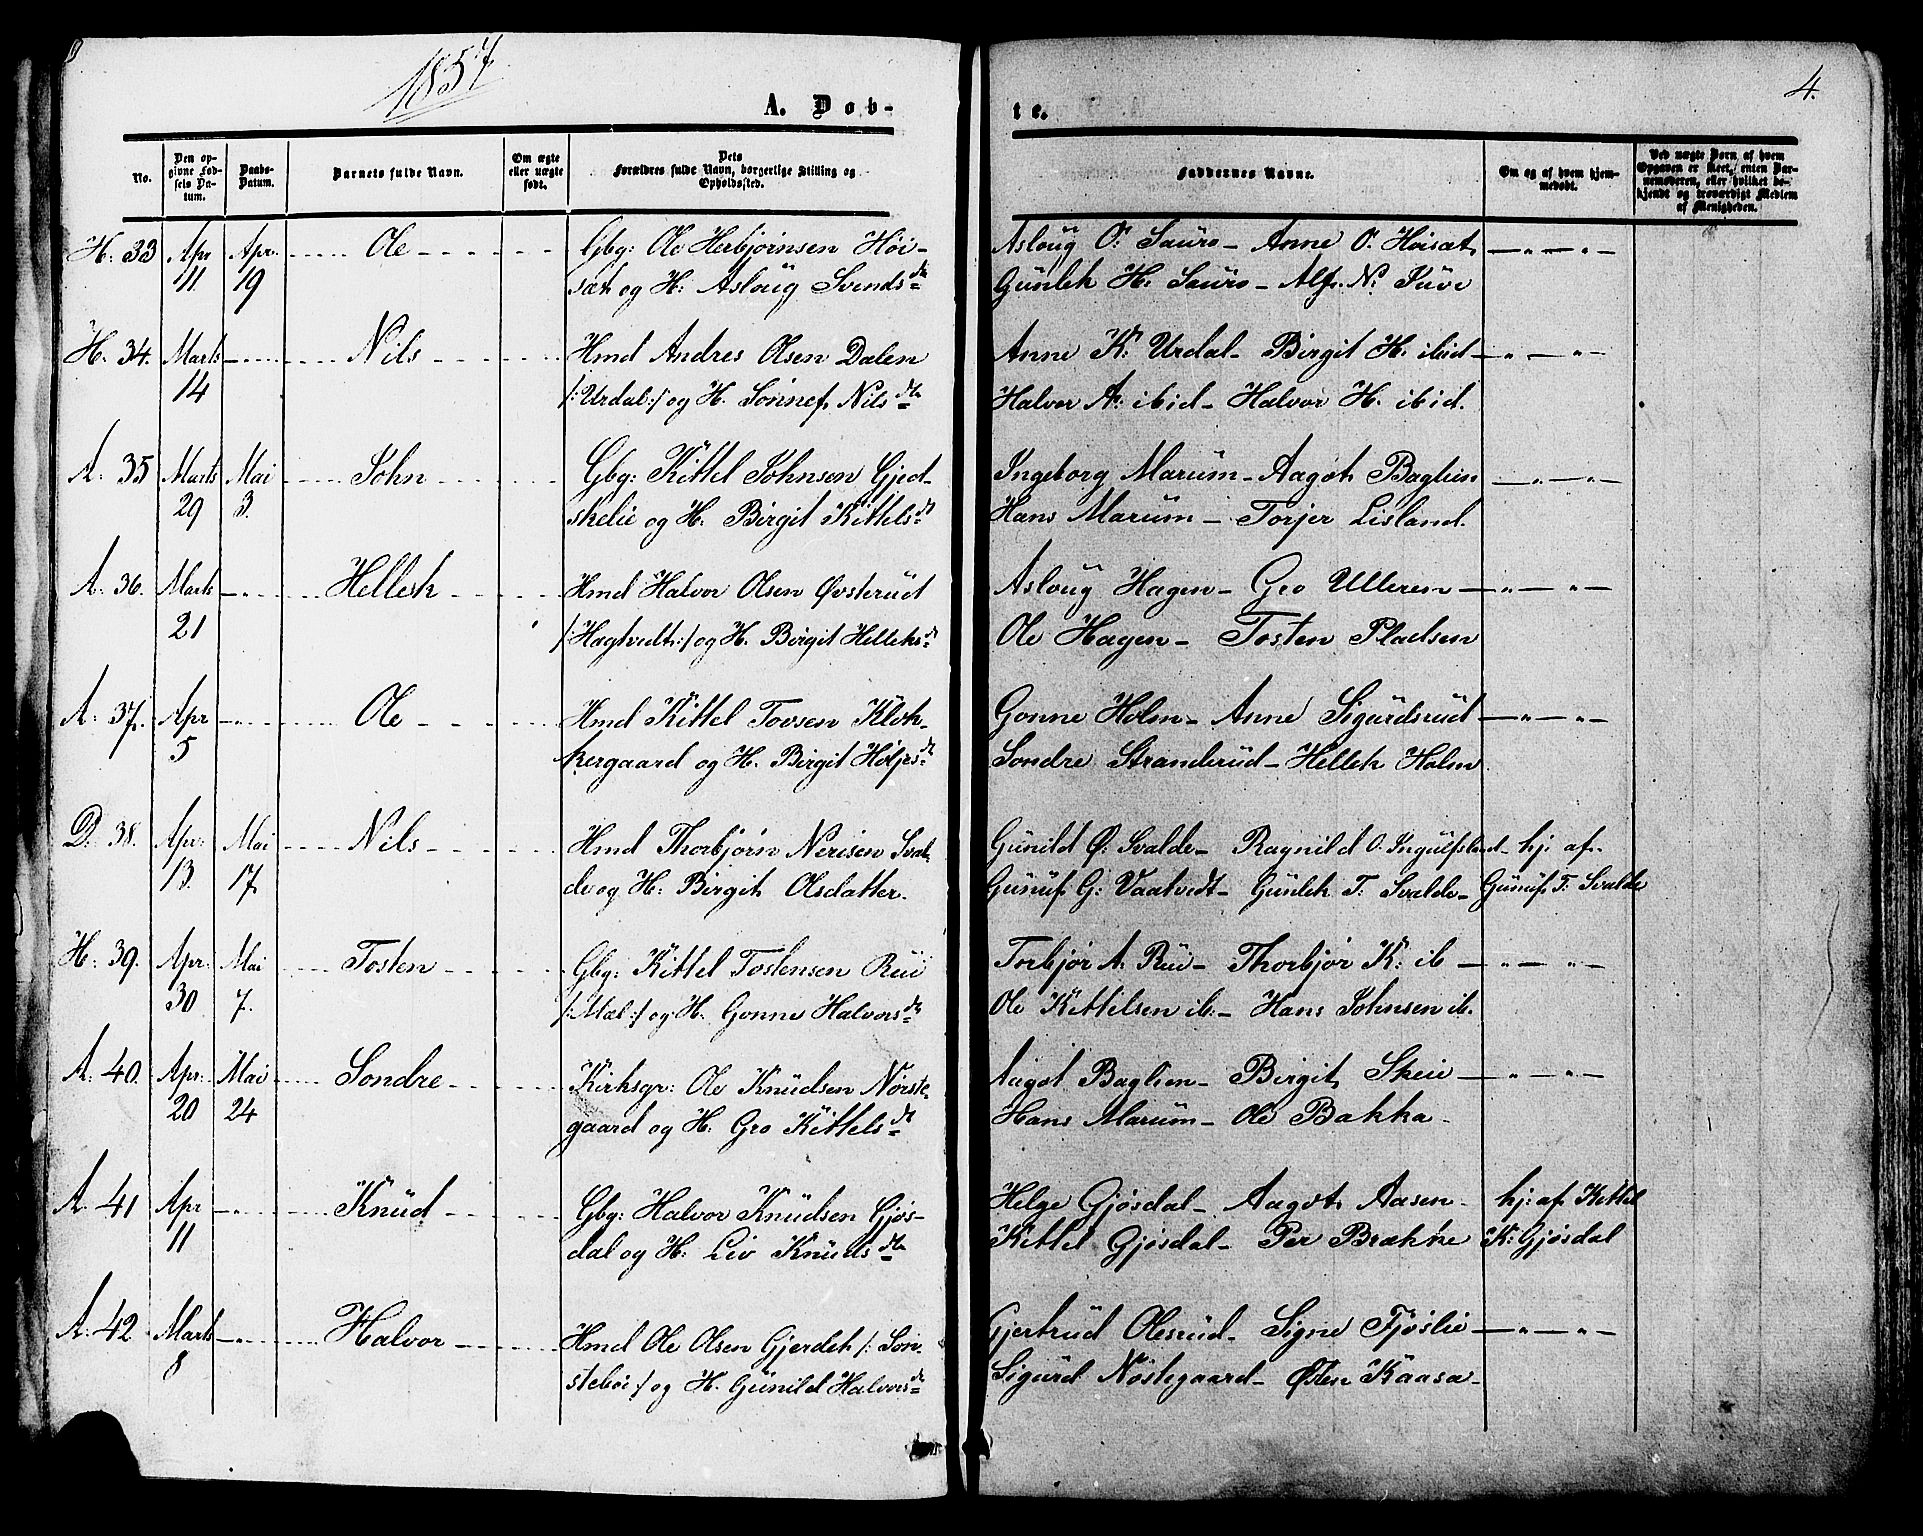 1857
4.
A. Døb-
te.
No.
Den op-
givne Fød-
sels Da-
tum.
Daabs-
Datum.
Barnets fulde Navn.
Om ægte
eller uægte
født.
Dets
Forældres fulde Navn, borgerlige Stilling og
Opholdssted.
Faddernes Navne.
Om og af hvem hjem-
medøbt.
Ved uægte Børn af hvem
Opgaven er skeet, enten Bar-
nemoderen, eller hvilket be-
kjendt og troværdigt Medlem
af Menigheden.
H: 33 Apr Apr. Ole Gbg: Ole Herbjørnsen Høi- Asloug O: Sauro - Anne O. Høisæt
11. 19 sæt og H: Asloug Svendsdtr Gunlek H: Sauro - Alf. N: Tuve
H. 34. Marts - " - Nils Hmd Andres Olsen Dalen Anne K: Urdal - Birgit H. ibid - " - " -
14 /: Urdal :/ og H. Sønnef. Nilsdtr Halvor A: ibid - Halvor H. ibid.
A: 35 Marts Mai John Gbg: Kittel Johnsen Gjed- Ingeborg Marum - Aagot Baglien - " - " -
29 3. skelie og H. Birgit Kittelsdtr Hans Marum - Torjer Lisland.
A: 36. Marts - " - Hellek Hmd Halvor Olsen Øvsterud Asloug Hagen - Gro Ulleren - " - " -
21 /: Hagtvedt :/ og H. Birgit Helleksdtr Ole Hagen - Tosten Pladsen
A: 37. Apr - " - Ole Hmd Kittel Tovsen Klok- Gonne Holm - Anne Sigurdsrud - " - " -
5 kergaard og H. Birgit Høljesdtr Sondre Stranderud - Hellek Holm
D: 38. Apr: Mai Nils Hmd Thorbjørn Nerisen Sval- Gunild Ø: Svalde - Ragnild O. Ingulfsland - hj: af
13. 17. de og H: Birgit Olsdatter. Gunuf G: Vaatvedt - Gunlek T: Svalde - Gunuf T: Svalde
H: 39. Apr. Mai Tosten Gbg: Kittel Tostensen Rui Torbjør A. Rui - Thorbjør K: ib - " - " -
30 7. /: Mæl :/ og H. Gonne Halvorsdtr Ole Kittilsen ib: - Hans Johnsen ib.
A: 40. Apr: Mai Sondre Kirksgr: Ole Knudsen Nørste- Aagot Baglien - Birgit Skeie - " - " -
20 24 gaard og H: Gro Kittelsdtr Hans Marum - Ole Bakka -
A. 41 Apr - " - Knud Gbg: Halvor Knudsen Gjøs- Helge Gjøsdal - Aagot Aasen - hj: af Kittel
11 dal og H: Liv Knudsdtr Kittel Gjøsdal - Per Brække K: Gjøsdal
A: 42 Marts - " - Halvor Hmd Ole Olsen Gjerdet /: Søn- Gjertrud Olesrud - Signe Fjøslie - " - " -
8 stebøe :/ og H. Gunild Halvorsdtr Sigurd Nøstegaard - Østen Kaasa -